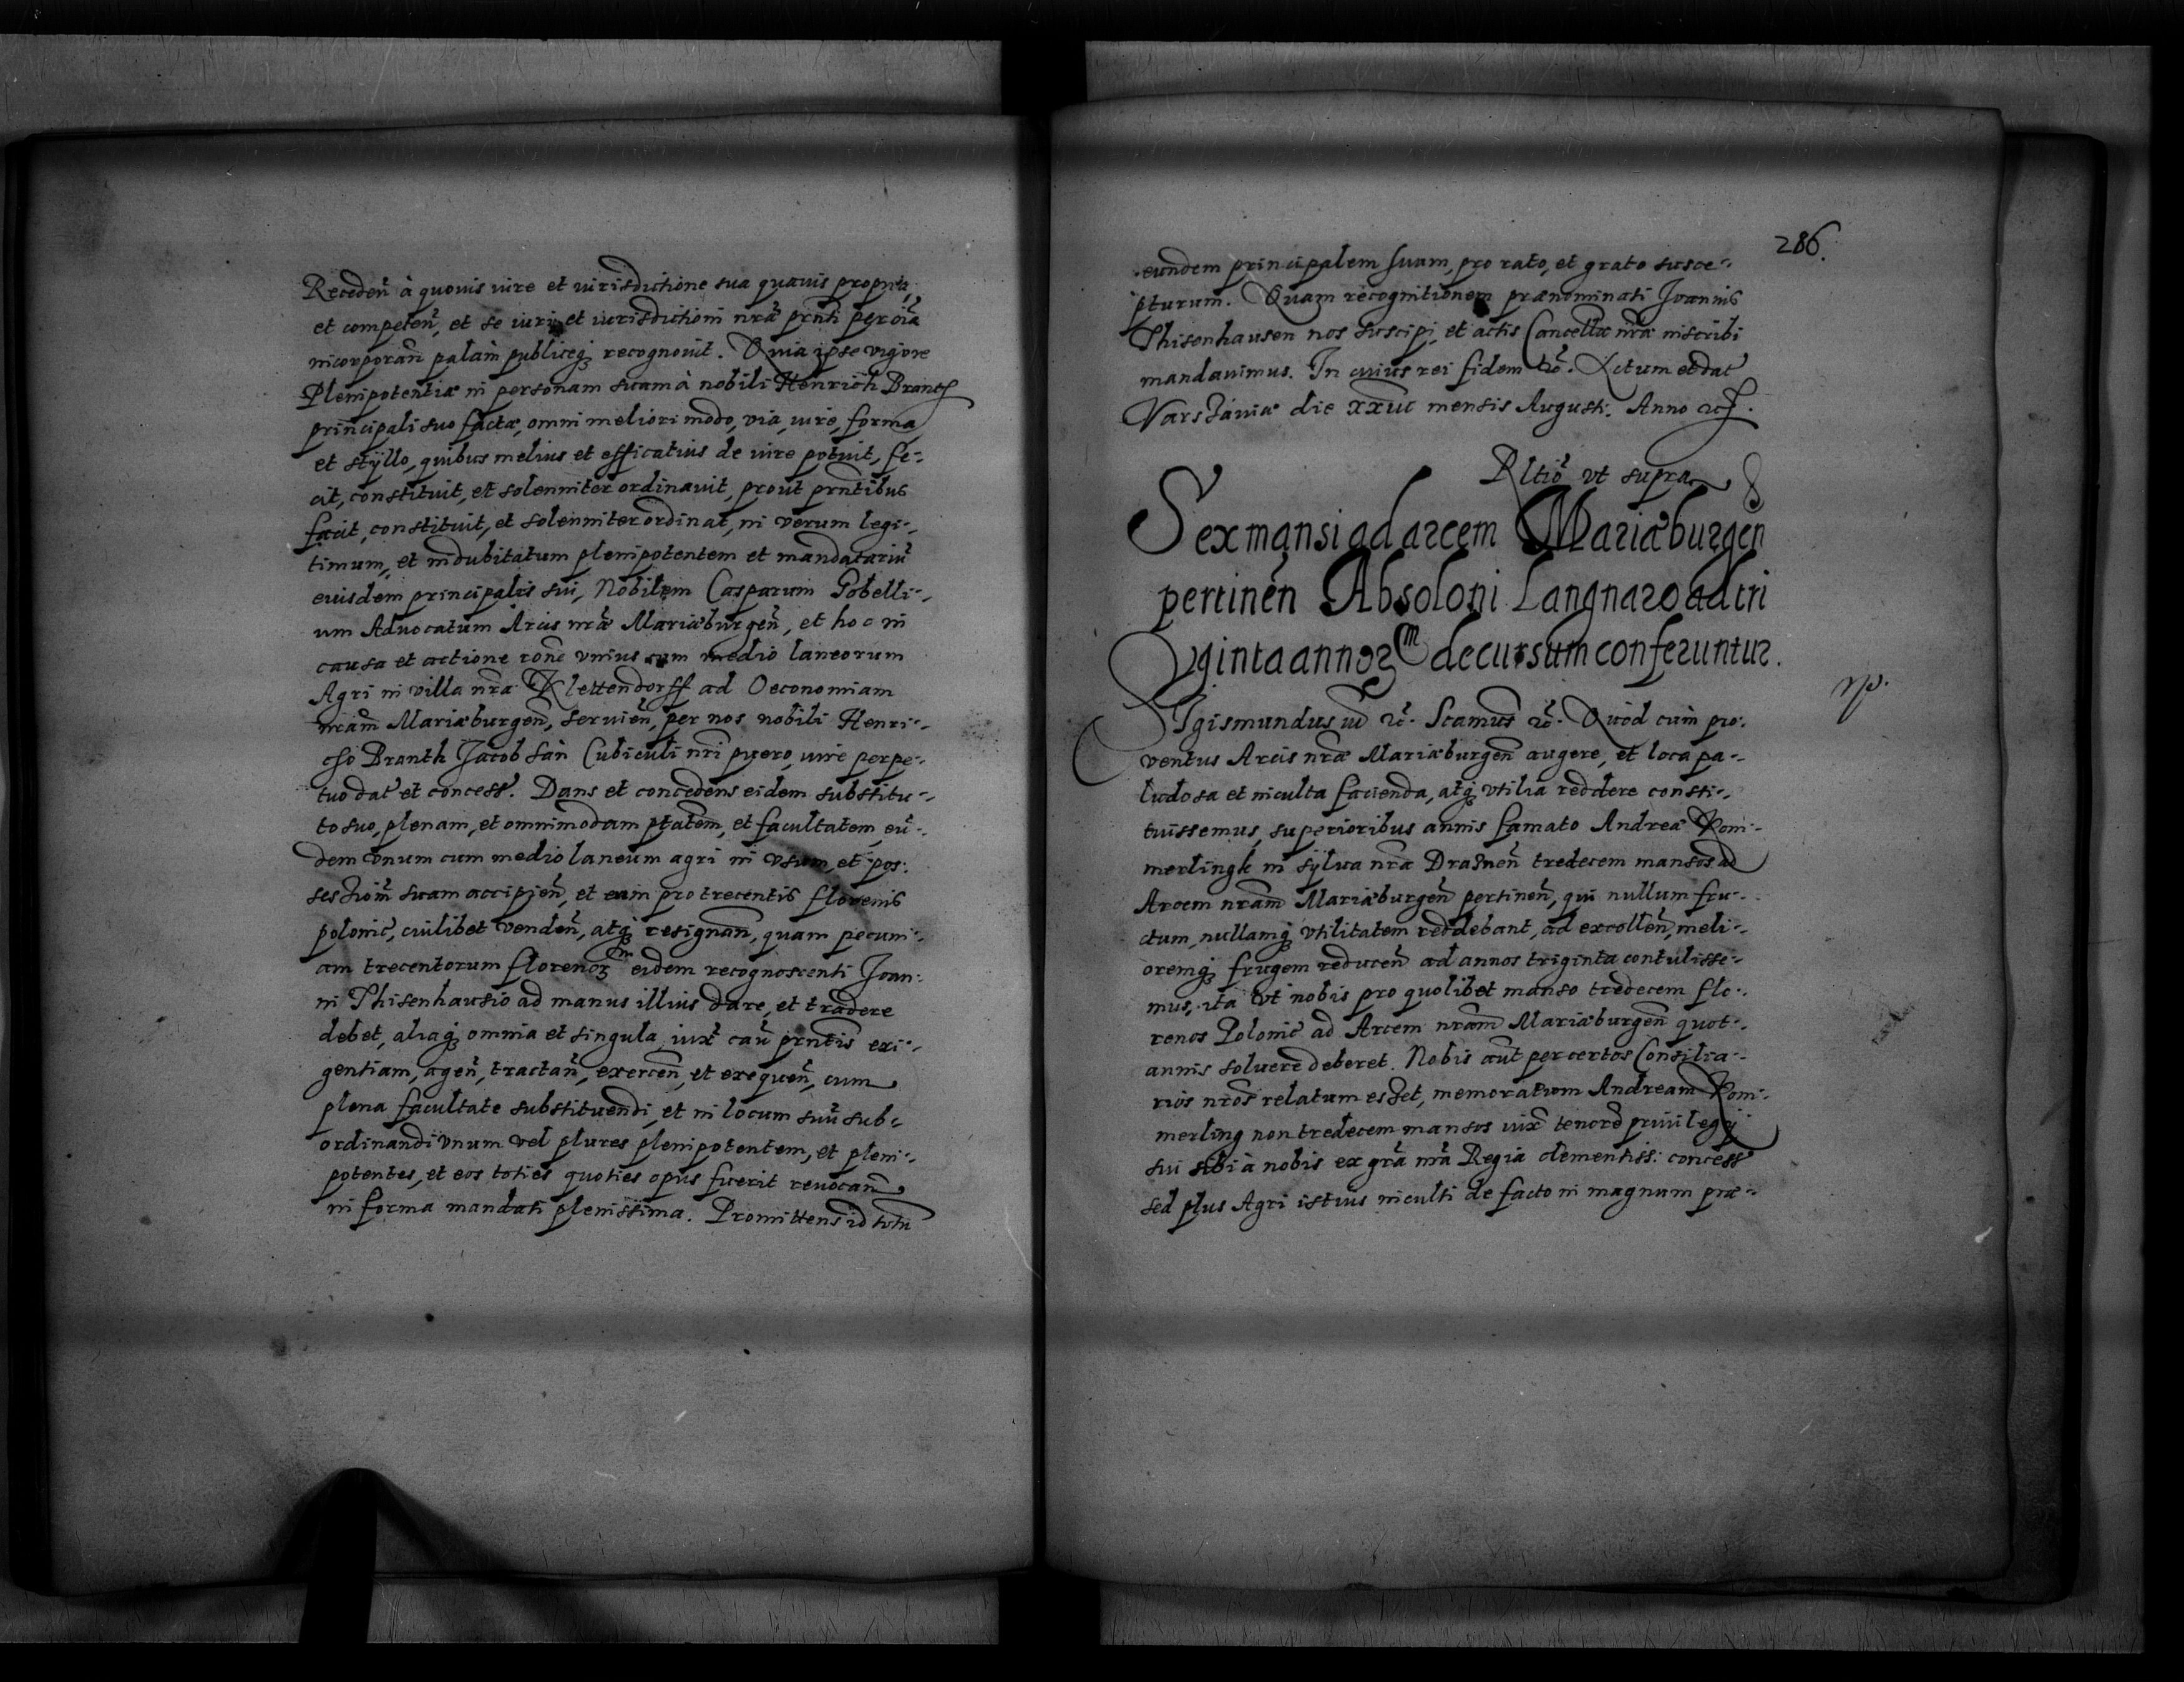 Receden̄ à quouis iure et iurisdictione sua quauis propria,
et competen̄, et se iuri et iurisdictioni nr̄a prn̄ti per oīa
incorporan̄ palam publiceq; recognouit. Quia ipse vigore
Plenipotentiæ in personam suam à nobili Henrich Branth
principali suo factæ, omni meliori modo, via, iure, forma,
et stÿllo, quibus melius et efficatius de iure potuit, fe-
cit, constituit, et solenniter ordinauit, prout prn̄tibus
facit, constituit, et solenniter ordinat, in verum legi-
timum, et indubitatum plenipotentem et mandatariū
euisdem principalis sui, Nobilem Casparum Gobelli-
um Aduocatum Arcis nr̄æ Mariæburgen̄, et hoc in
causa et actione rōne vnius cum medio laneorum
Agri in villa nr̄a Klettendorff ad Oeconomiam
nr̄am Mariæburgen̄, seruien̄, per nos nobili Henri-
cho Branth Jacobsan Cubiculi nr̄i puero, iure perpe-
tuo dat̄ et concess̄. Dans et concedens eidem substitu-
to suo, plenam, et omnimodam ptātem, et facultatem, eū-
dem vnum cum medio laneum agri in vsum, et pos-
sessiōm̄ suam accipien̄, et eum pro trecentis florenis
polonic̄, cuilibet venden̄, atq; resignan̄, quam pecuni-
am trecentorum florenoꝝ eidem recognoscenti Joan-
ni Thisenhausio ad manus illius dare, et tradere
debet, aliaq; omnia et singula iuxt̄ caū prn̄tis exi-
gentiam, agen̄, tractan̄, exercen̄, et exequen̄, cum
plena facultate substituendi, et in locum suū sub-
ordinandi vnum vel plures plenipotentem, et pleni-
potentes, et eos toties quoties opus fuerit reuocan̄
in forma mandati plenissima. Promittens id totū
286.
eundem principalem suum, pro rato, et grato susce-
pturum. Quam recognitionem prænominati Joannis
Thisenhausen nos suscipi, et actis Cancellæ nr̄æ inscribi
mandauimus. In cuius rei fidem ꝛc̄. Actum et dat̄
Varsauiæ die xxiii mensis Augusti. Anno
Rltiō vt supra
Sex mansi ad arcem Mariæburgen
pertinen̄ Absoloni Langnaro ad tri
ginta annoꝝ decursum conferuntur.
Sigismundus iii ꝛc̄. Scamus ꝛc̄. Quod cum pro-
ventus Arcis nr̄æ Mariæburgen̄ augere, et loca pa-
ludosa et inculta facienda, atq; vtilia reddere consti-
tuissemus, superioribus annis famato Andreæ Pom-
merlingk in sÿlua nr̄a Drasnen̄ tredecem mansos ad
Arcem nr̄am Mariæburgen̄ pertinen̄, qui nullum fru-
ctum, nullamq; vtilitatem reddebant, ad excollen̄, meli-
oremq; frugem reducen̄ ad annos triginta contulisse-
mus, ita vt nobis pro quolibet manso tredecem flo-
renos Polonic̄ ad Arcem nr̄am Mariæburgen̄ quot-
annis soluere deberet. Nobis aūt per certos Consilia-
rios nr̄os relatum esset, memoratum Andream Pom-
merling non tredecem mansos iuxt̄ tenorē priuilegij
sui sibi à nobis ex gr̄a nr̄a Regia clementiss: concess̄
sed plus Agri istius inculti de facto in magnum præ-